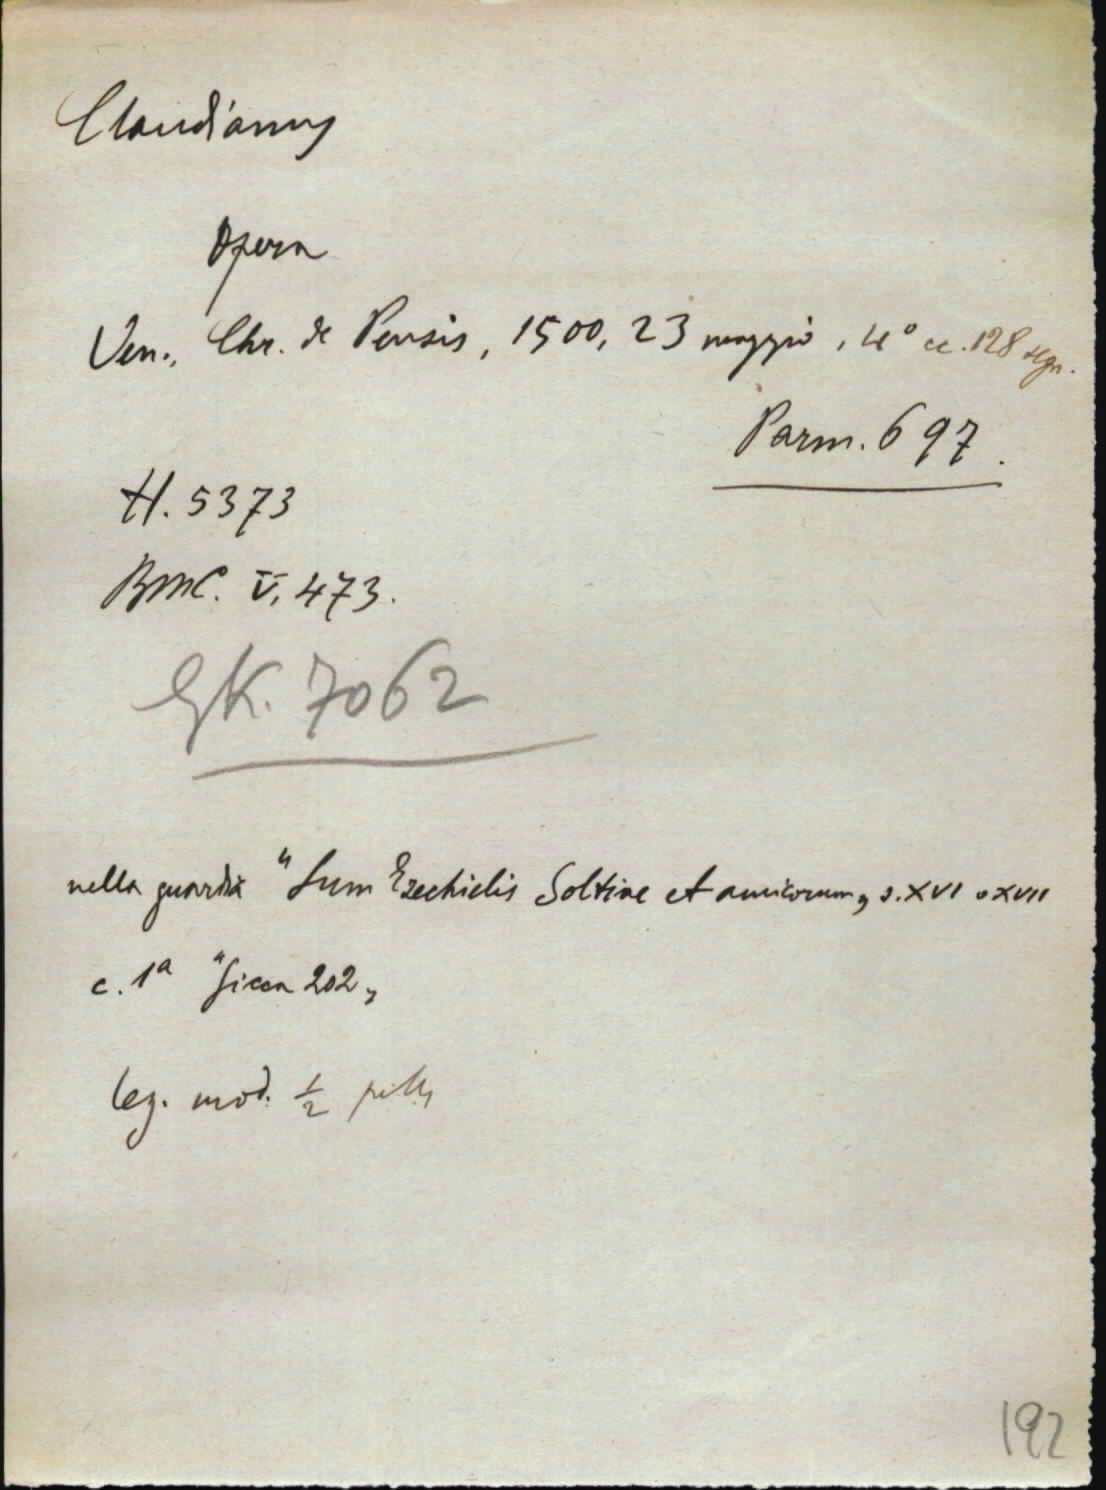 Claudianus
Opera
Ven., Chr. de Pensis, 1500, 23 maggio, 4° cc. 128 segn.
Parm. 697.
H. 5373
BMC. V, 473.
GK. 7062
nella guardia "Sum Ezechielis Soltine et amicorum„ s. XVI o XVII
c. 1a "Sicca 202„
leg. mod. ½ pelle
192